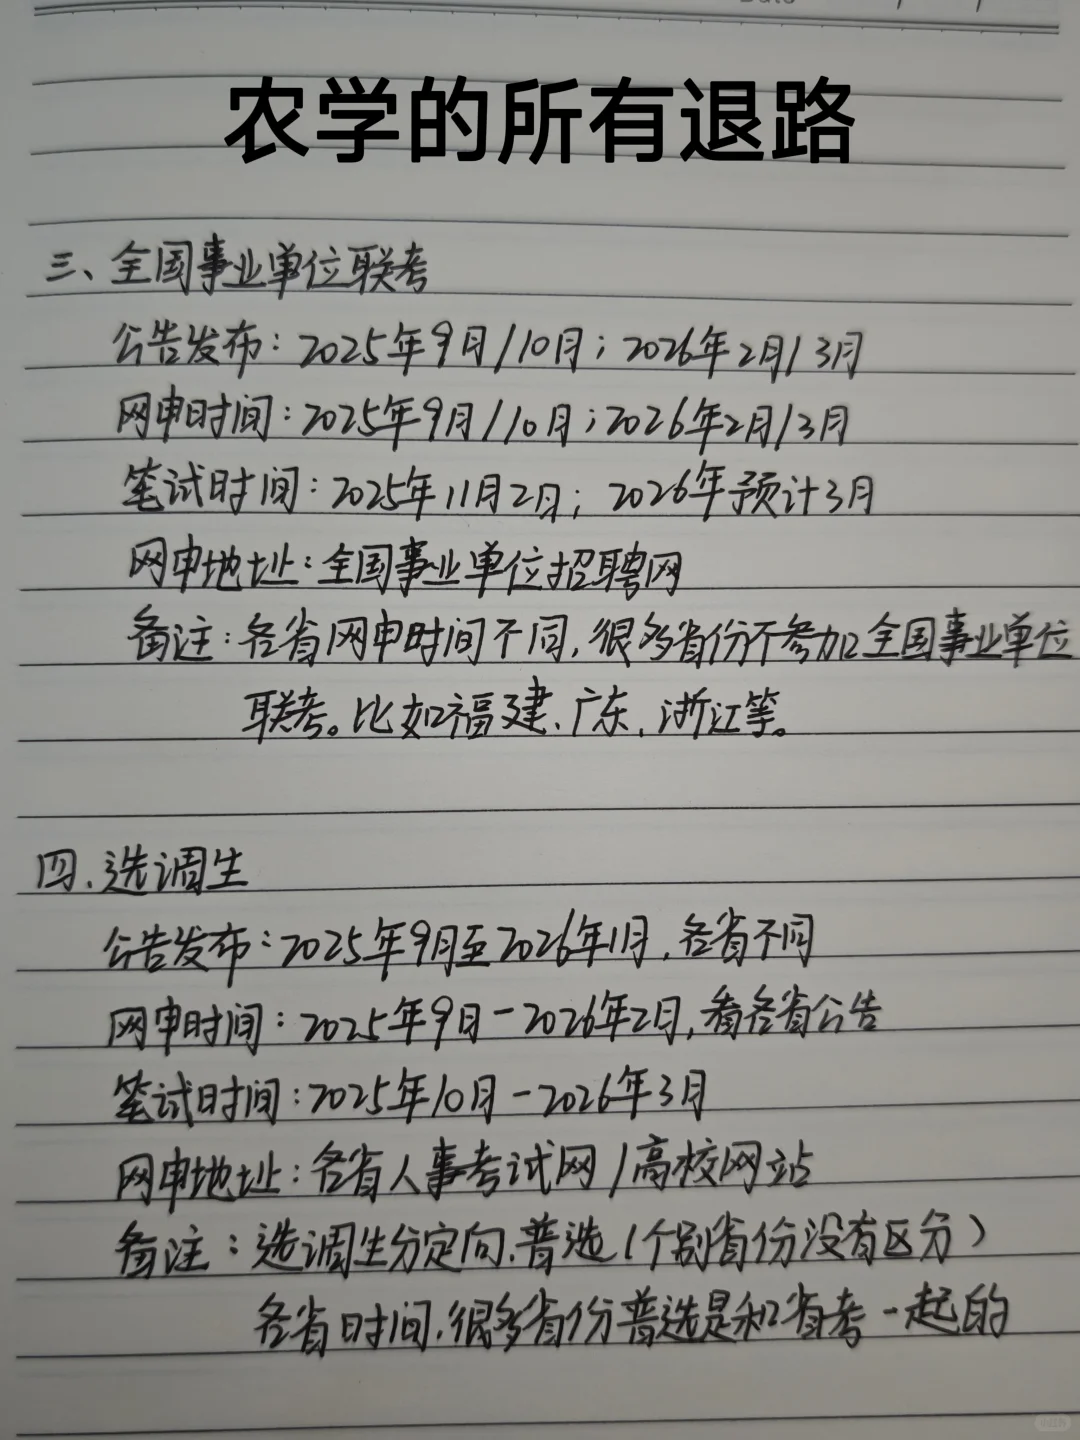 农学的所有退路
三、全国事业单位联考
公告发布：2025年9月/10月；2026年2月/3月
网申时间：2025年9月/10月；2026年2月/3月
笔试时间：2025年11月2日；2026年预计3月
网申地址：全国事业单位招聘网
备注：各省网申时间不同，很多省份不参加全国事业单位
联考。比如福建、广东、浙江等。
四、选调生
公告发布：2025年9月至2026年1月，各省不同
网申时间：2025年9月-2026年2月，看各省公告
笔试时间：2025年10月-2026年3月
网申地址：各省人事考试网/高校网站
备注：选调生分定向、普选（个别省份没有区分）
各省时间，很多省份普选是和省考一起的